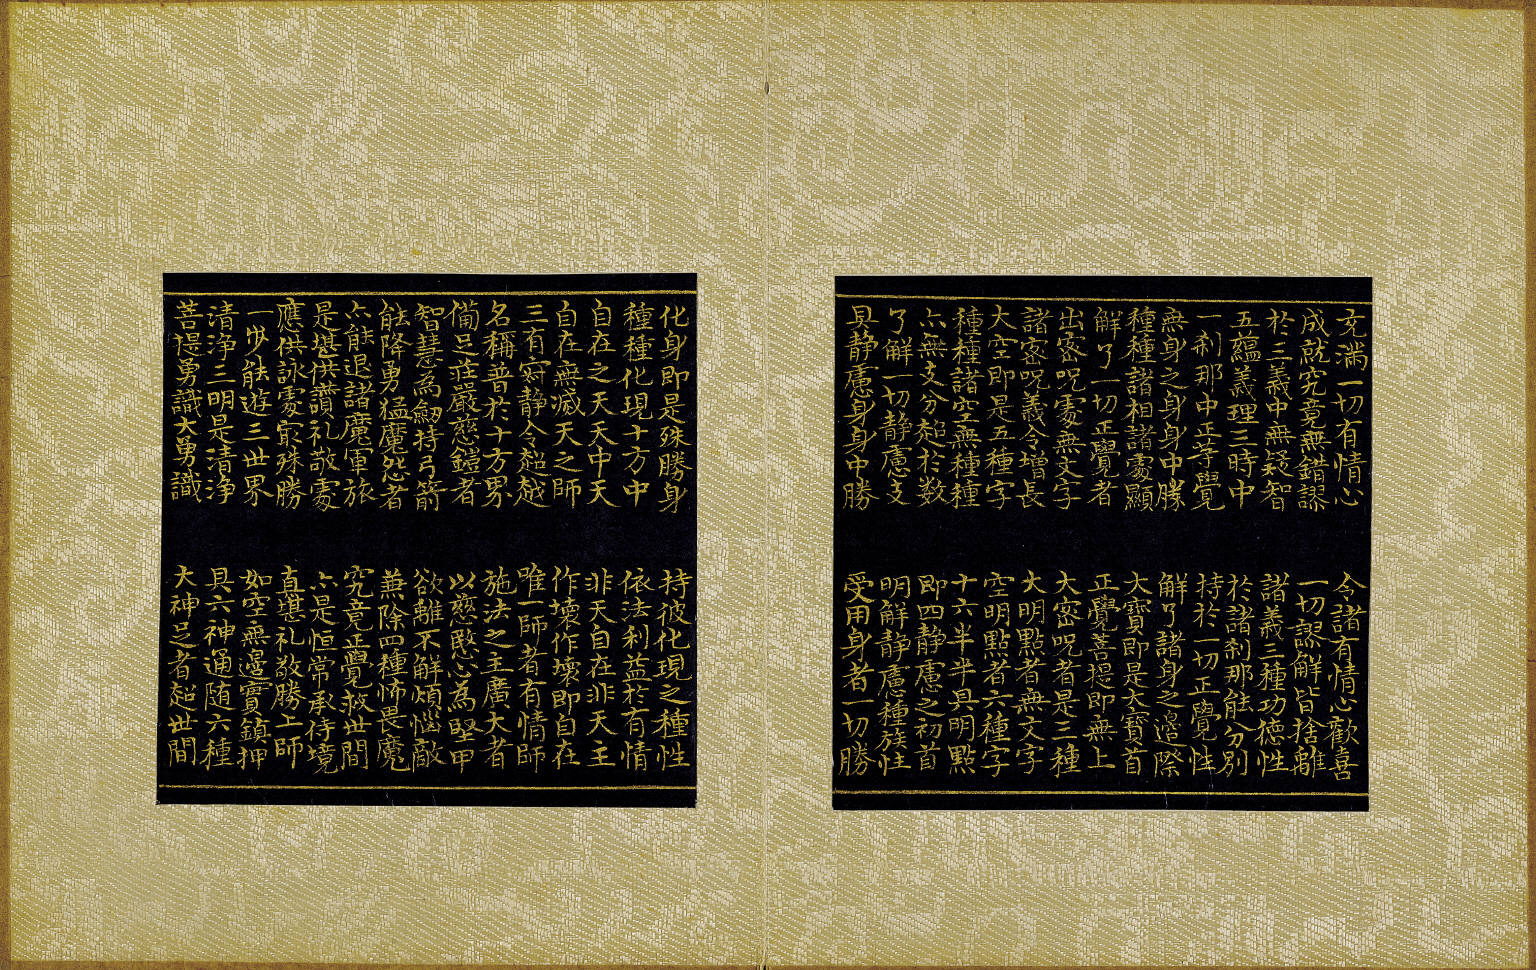 充滿一切有情心　令諸有情心歡喜
成就究竟無錯謬　一切謬解皆捨離
於三義中無疑智　諸義三種功德性
五蘊義理三時中　於諸刹那能分別
一刹那中正等覺　持於一切正覺性
無身之身身中勝　解了諸身之邊際
種種諸相諸處顯　大寶即是大寶首
解了一切正覺者　正覺菩提即無上
出密呪處無文字　大密呪者是三種
諸密呪義令增長　大明點者無文字
大空即是五種字　空明點者六種字
種種諸空無種種　十六半半具明點
亦無支分超於数　即四静慮之初首
了解一切静慮支　明解静慮種族性
具静慮身身中勝　受用身者一切勝
化身即是殊勝身　持彼化現之種性
種種化現十方中　依法利益於有情
自在之天天中天　非天自在非天主
自在無滅天之師　作壞作壞即自在
三有寂静令超越　唯一師者有情師
名稱普於十方界　施法之主廣大者
備足莊嚴慈鎧者　以慈愍心為堅甲
智慧為劒持弓箭　欲離不解煩惱敵
能降勇猛魔怨者　兼除四種怖畏魔
亦能退諸魔軍旅　究竟正覺救世間
是堪供讚礼敬處　亦是恒常承侍境
應供詠處最殊勝　真堪礼敬勝上師
一步能遊三世界　如空無邊實鎮押
清淨三明是清淨　具六神通随六種
菩提勇識大勇識　大神足者超世間